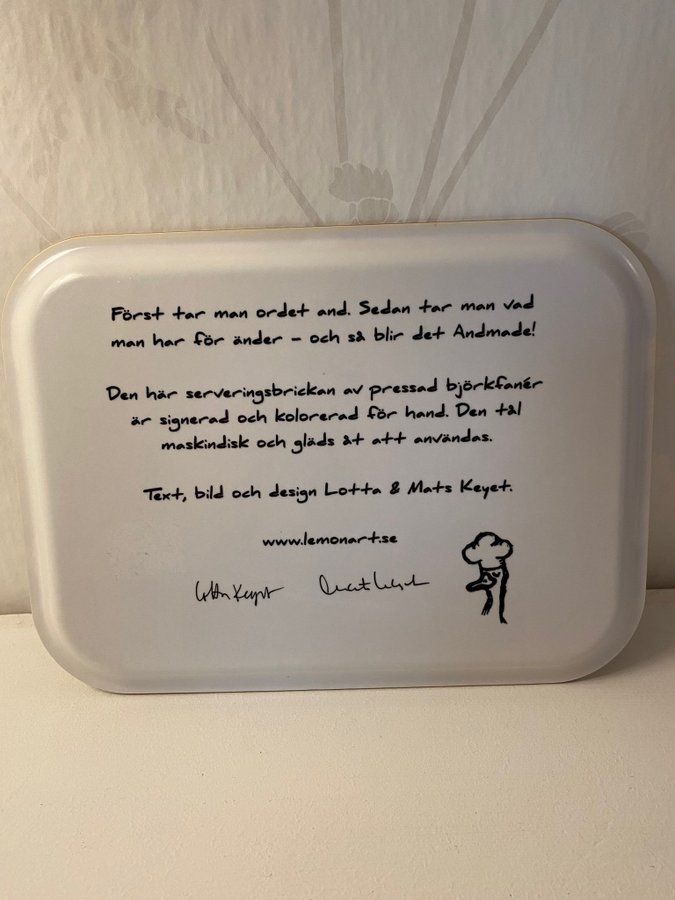 Först tar man ordet and. Sedan tar man vad
man har för änder - och så blir det Andmade!
Den här serveringsbrickan av pressad björkfanér
är signerad och kolorerad för hand. Den tål
maskindisk och gläds åt att användas.
Text, bild och design Lotta & Mats Keyet.
www.lemonart.se
Lotta Keyet